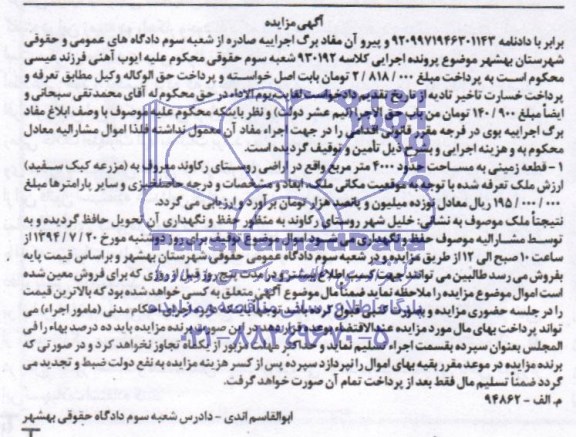 آگهی مزایده
برابر با دادنامه ۹۲۰۹۹۷۱۹۴۶۳۰۱۱۴۳ و پیرو آن مفاد برگ اجراییه صادره از شعبه سوم دادگاه های عمومی و حقوقی
شهرستان بهشهر موضوع پرونده اجرایی کلاسه ۹۳۰۱۹۲ شعبه سوم حقوقی محکوم علیه ایوب آهنی فرزند عیسی
محکوم است به پرداخت مبلغ ۲/۸۱۸/۰۰۰ تومان بابت اصل خواسته و پرداخت حق الوکاله وکیل مطابق تعرفه و
پرداخت خسارت تاخیر تادیه از تاریخ تقدیم دادخواست لغایت یوم الاداء در حق محکوم له آقای محمد تقی سبحانی و
ایضاً مبلغ ۱۴۰/۹۰۰ تومان من باب حق الاجرا (نیم عشر دولت) و نظر باینکه محکوم علیه موصوف با وصف ابلاغ مفاد
برگ اجراییه بوی در فرجه مقرر قانونی اقدامی را در جهت اجراء مفاد آن معمول نداشته فلذا اموال مشارالیه معادل
محکوم به و هزینه اجرایی و بشرح ذیل تأمین و توقیف گردیده است.
۱ - قطعه زمینی به مساحت حدود ۴۰۰۰ متر مربع واقع در اراضی روستای رکاوند معروف به (مزرعه کبک سفید)
ارزش ملک تعرفه شده با توجه به موقعیت مکانی ملک، ابعاد و مشخصات و درجه حاصلخیزی و سایر پارامترها مبلغ
۱۹۵/۰۰۰/۰۰۰ ریال معادل نوزده میلیون و پانصد هزار تومان برآورد و ارزیابی می گردد.
نتیجتاً ملک موصوف به نشانی: خلیل شهر روستای رکاوند به منظور حفظ و نگهداری آن تحویل حافظ گردیده و به
توسط مشارالیه موصوف حفظ و نگهداری می شود اموال موضوع توقیف برای روز دوشنبه مورخ ۱۳۹۴/۷/۲۰ از
ساعت ۱۰ صبح الی ۱۲ از طریق مزایده و در شعبه سوم دادگاه عمومی حقوقی شهرستان بهشهر و براساس قیمت پایه
بفروش می رسد طالبین می توانند جهت کسب اطلاع بیشتر و در مدت پنج روز قبل از روزی که برای فروش معین شده
است اموال موضوع مزایده را ملاحظه نماید ضمناً مال موضوع آگهی متعلق به کسی خواهد شده بود که بالاترین قیمت
را در جلسه حضوری مزایده و بصورت کتبی قبول کرده باشد احکام مدنی (مامور اجراء) می
تواند پرداخت بهای مال مورد مزایده عندالاقتضاء بوعده قرار دهد در این صورت برنده مزایده باید ده درصد بهاء را فی
المجلس بعنوان سپرده بقسمت اجراء تسلیم نماید و حداکثر مهلت مزبور از یکماه تجاوز نخواهد کرد و در صورتی که
برنده مزایده در موعد مقرر بقیه بهای اموال را نپردازد سپرده پس از کسر هزینه مزایده به نفع دولت ضبط و تجدید می
گردد ضمناً تسلیم مال فقط بعد از پرداخت تمام آن صورت خواهد گرفت.
م. الف - ۹۴۸۶۲
ابوالقاسم اندی - دادرس شعبه سوم دادگاه حقوقی بهشهر